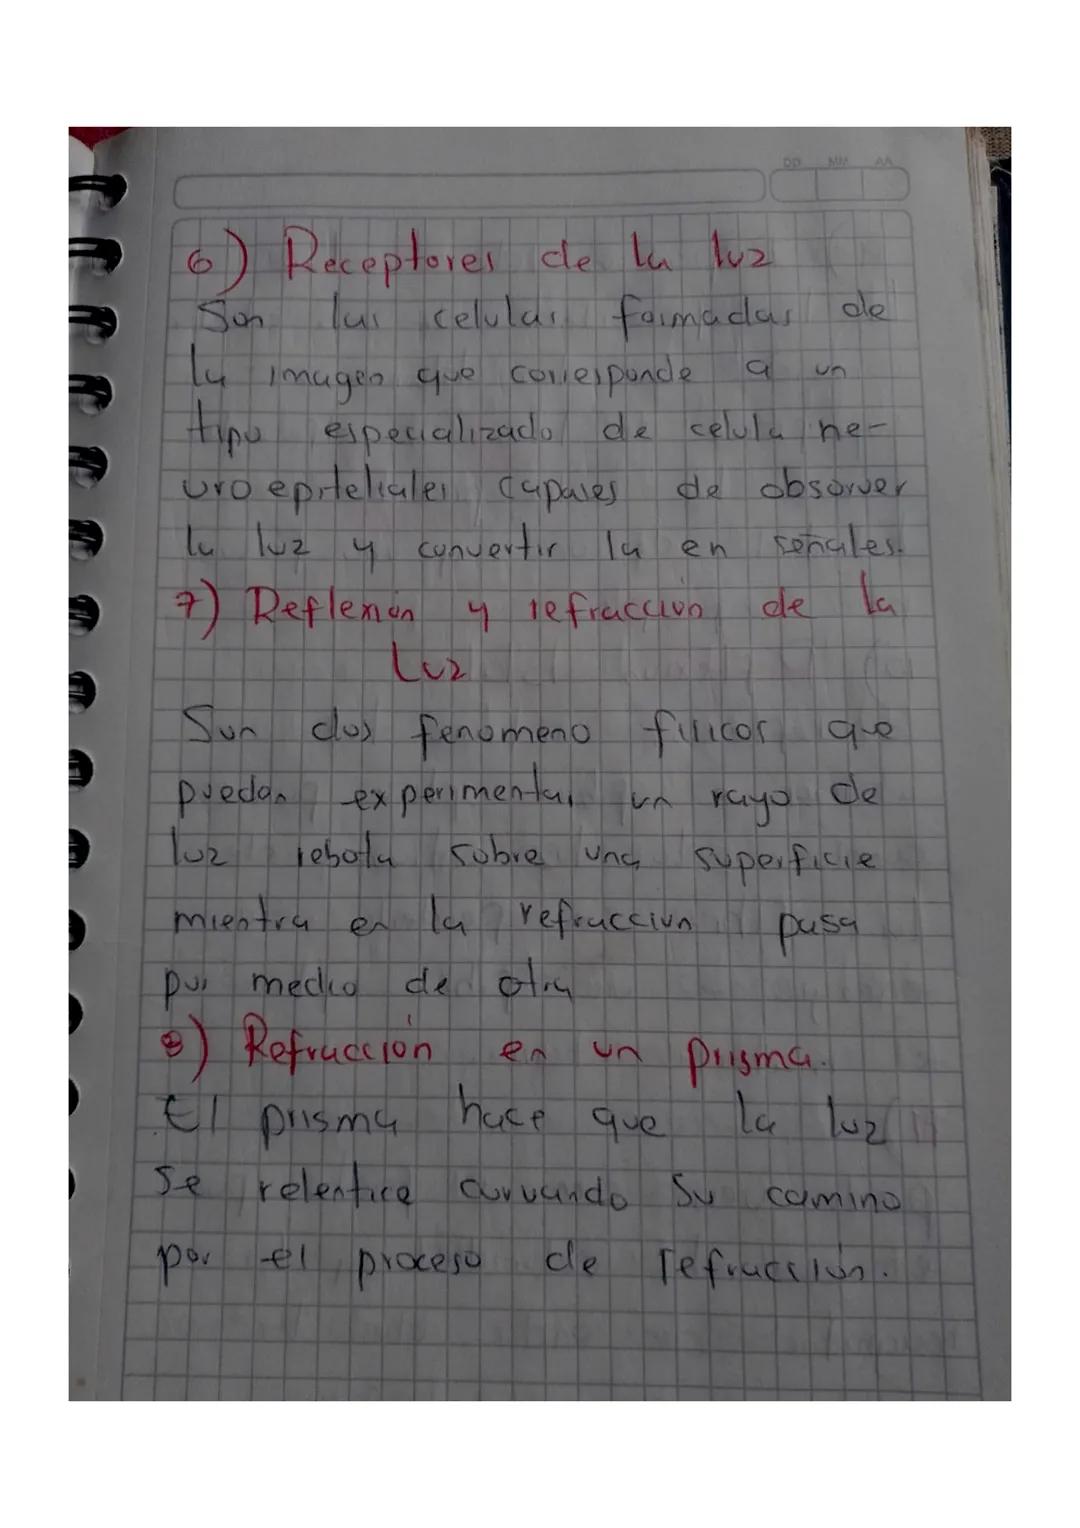 DD MM AA
6) Receptores de la luz
Son las celulas formadas de
la imagen que corresponde a un
tipo especializado de celula ne-
uro epiteliales capases de obsorver
la luz y convertir la en señales.
7) Reflexión y refraccion de la
Luz
Son dos fenomeno fisicos que
puedan experimentar un rayo de
luz rebota sobre una superficie
mientra en la refraccion pasa
por medio de otra
8) Refracción en un prisma.
El prisma hace que la luz
se relentice curvando su camino
por el proceso de refracción.